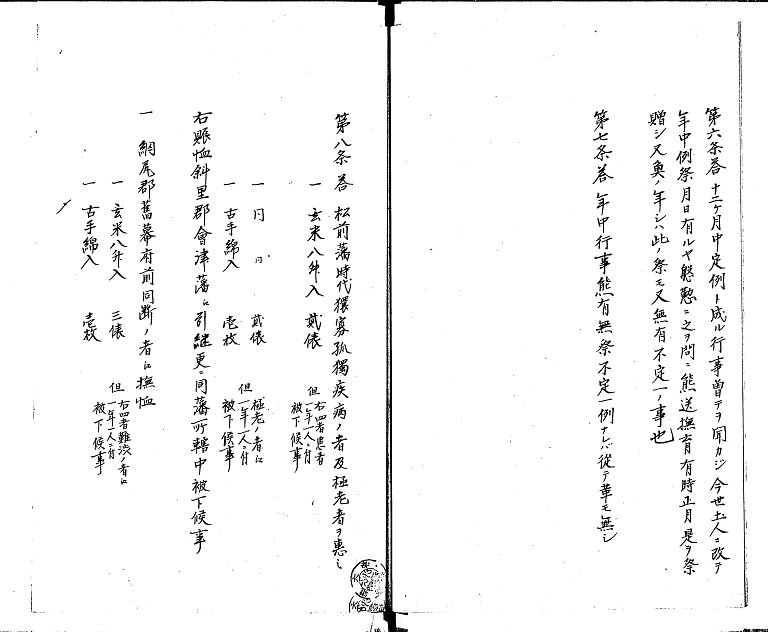 第六条答 十二ケ月中定例ト成ル行事曽テヲ聞カジ今世土人ニ改テ
年中例祭月日有ルヤ懇懃ニ之ヲ問ニ熊送撫育有時正月是ヲ祭
贈シ又奥ノ年シハ此ノ祭モ又無有不定一ノ事也
第七条答 年中行事熊有無祭不定一例ナレバ従テ葦モ無シ
第八条答 松前藩時代獨寡孤獨疾病ノ者及極老者ヲ惠シ
一 玄米八舛入 貳俵 但右四者患者一年一人ニ付被下候事
一 同 同 貳俵
一 古手綿入 壱枚 但極老ノ者江一年一人ニ付被下候事
右賑恤斜里郡會津藩江引継更ニ同藩所轄中被下候事
一 網尾郡舊幕府前同断ノ者江撫恤
一 玄米八舛入 三俵
一 古手綿入 壱枚 但右四者難渋ノ者江一年一人ニ付被下候事